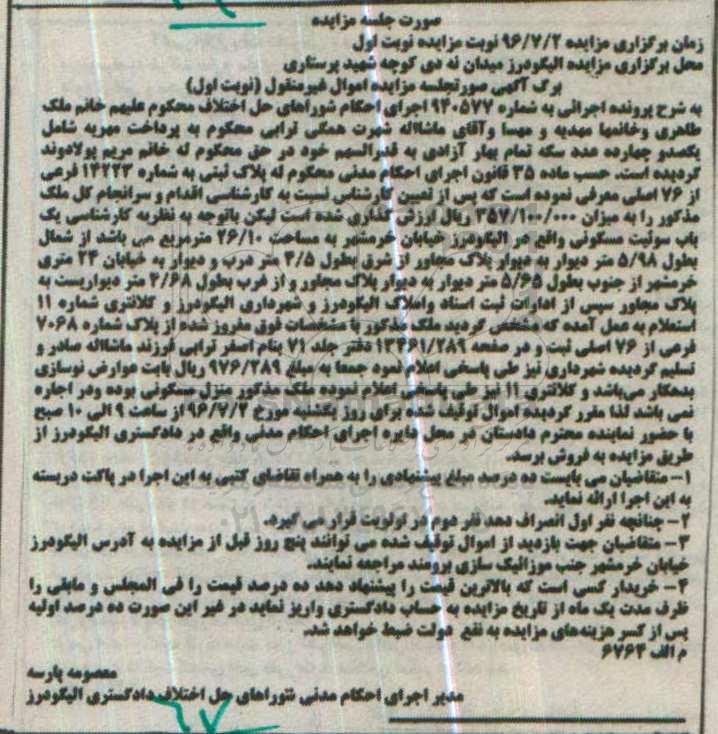 صورت جلسه مزایده
زمان برگزاری مزایده ۹۶/۷/۲ نوبت مزایده نوبت اول
محل برگزاری مزایده الیگودرز میدان نه دی کوچه شهید پرستاری
برگ آگهی صورتجلسه مزایده اموال غیرمنقول (نوبت اول)
به شرح پرونده اجرائی به شماره ۹۴۰۵۷۷ اجرای احکام شوراهای حل اختلاف محکوم علیهم خانم ملک
طاهری وخانمها مهدیه و مهسا وآقای ماشااله شهرت همگی ترابی محکوم به پرداخت مهریه شامل
یکصدو چهارده عدد سکه تمام بهار آزادی به قدرالسهم خود در حق محکوم له خانم مریم پولادوند
گردیده است. حسب ماده ۳۵ قانون اجرای احکام مدنی محکوم له پلاک ثبتی به شماره ۱۴۲۲۳ فرعی
از ۷۶ اصلی معرفی نموده است که پس از تعیین کارشناس نسبت به کارشناسی اقدام و سرانجام کل ملک
مذکور را به میزان ۳۵۷/۱۰۰/۰۰۰ ریال ارزش گذاری شده است لیکن باتوجه به نظریه کارشناسی یک
باب سوئیت مسکونی واقع در الیگودرز خیابان خرمشهر به مساحت ۲۶/۱۰ مترمربع می باشد از شمال
بطول ۵/۹۸ متر دیوار به دیوار پلاک مجاور از شرق بطول ۴/۵ متر درب و دیوار به خیابان ۲۴ متری
خرمشهر از جنوب بطول ۵/۶۵ متر دیوار به دیوار پلاک مجاور و از غرب بطول ۴/۶۸ متر دیواریست به
پلاک مجاور سپس از ادارات ثبت اسناد واملاک الیگودرز و شهرداری الیگودرز و کلانتری شماره ۱۱
استعلام به عمل آمده که مشخص گردید ملک مذکور با مشخصات فوق مفروز شده از پلاک شماره ۷۰۶۸
فرعی از ۷۶ اصلی ثبت و در صفحه ۱۳۴۶۱/۲۸۹ دفتر جلد ۷۱ بنام اصغر ترابی فرزند ماشااله صادر و
تسلیم گردیده شهرداری نیز طی پاسخی اعلام نمود جمعا به مبلغ ۹۷۶/۲۸۹ ریال بابت عوارض نوسازی
بدهکار می‌باشد و کلانتری ۱۱ نیز طی پاسخی اعلام نموده ملک مذکور منزل مسکونی بوده ودر اجاره
نمی باشد لذا مقرر گردیده اموال توقیف شده برای روز یکشنبه مورخ ۹۶/۷/۲ از ساعت ۹ الی ۱۰ صبح
با حضور نماینده محترم دادستان در محل دایره اجرای احکام مدنی واقع در دادگستری الیگودرز از
طریق مزایده به فروش برسد.
۱- متقاضیان می بایست ده درصد مبلغ پیشنهادی را به همراه تقاضای کتبی به این اجرا در پاکت دربسته
به این اجرا ارائه نماید.
۲- چنانچه نفر اول انصراف دهد نفر دوم در اولویت قرار می گیرد.
۳- متقاضیان جهت بازدید از اموال توقیف شده می توانند پنج روز قبل از مزایده به آدرس الیگودرز
خیابان خرمشهر جنب موزائیک سازی برومند مراجعه نمایند.
۴- خریدار کسی است که بالاترین قیمت را پیشنهاد دهد ده درصد قیمت را فی المجلس و مابقی را
ظرف مدت یک ماه از تاریخ مزایده به حساب دادگستری واریز نماید در غیر این صورت ده درصد اولیه
پس از کسر هزینه‌های مزایده به نفع دولت ضبط خواهد شد.
م الف ۶۷۶۴
معصومه پارسه
مدیر اجرای احکام مدنی شوراهای حل اختلاف دادگستری الیگودرز